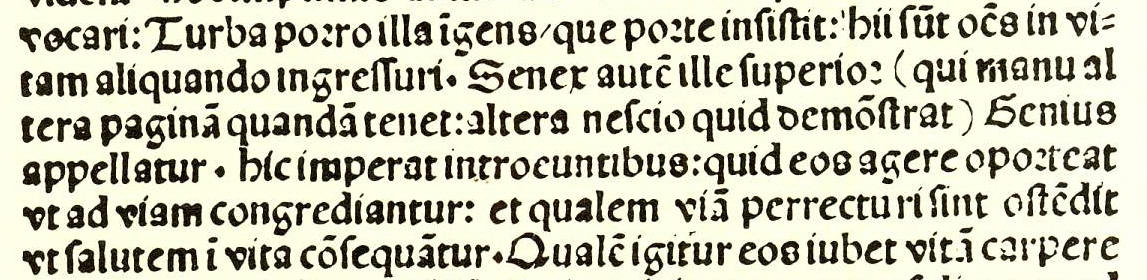 vocari: Turba porro illa īgens/que porte insistit: hii sūt oēs in vi=
tam aliquando ingressuri. Senex autē ille superior (qui manu al
tera paginā quandā tenet: altera nescio quid demōstrat) Genius
appellatur. hic imperat introeuntibus: quid eos agere oporteat
vt ad viam congrediantur: et qualem viā perrecturi sint ostēdit
vt salutem ī vita cōsequātur. Qualē igitur eos iubet vitā carpere